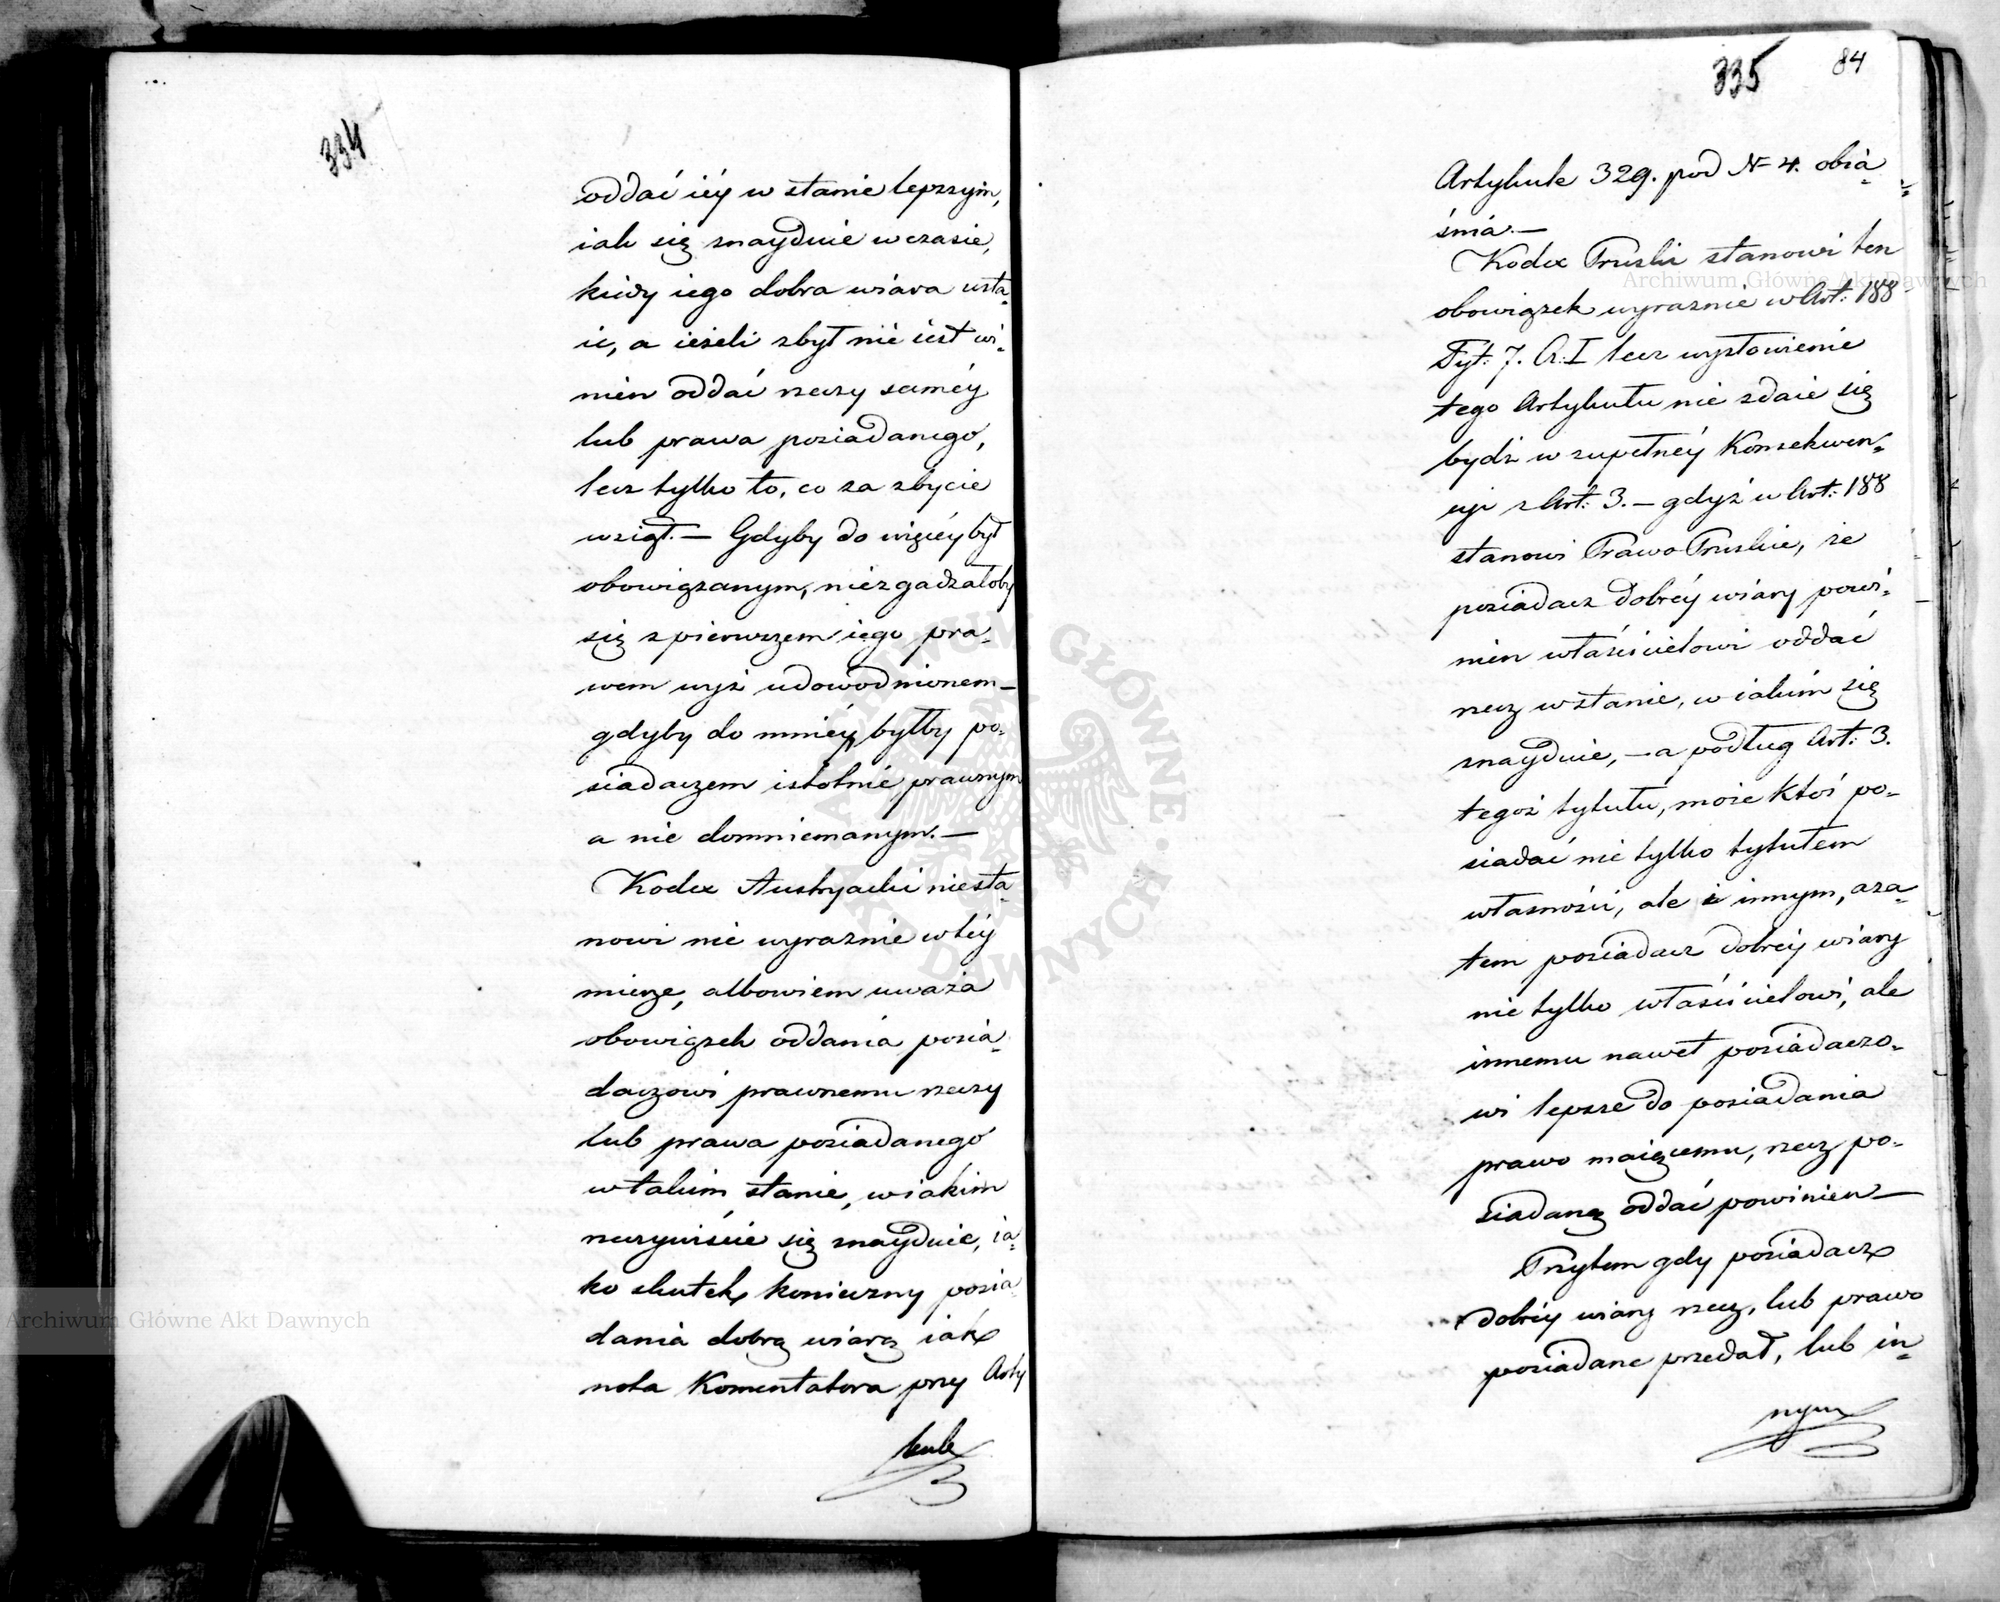 334
oddać iéy w stanie lepszym,
iak się znayduie w czasie,
kiedy iego dobra wiara usta-
ie, a ieżeli zbył nie iest wi-
nien oddać rzeczy saméy
lub prawa posiadanego,
lecz tylko to, co za zbycie
wziął. — Gdyby do więcéy był
obowiązanym, niezgadzałoby
się z pierwszem iego pra-
wem wyż udowodnionem —
gdyby do mniéy, byłby po-
siadaczem istotnie prawnym
a nie domniemanym. —
Kodex Austryacki niesta-
nowi nic wyraźnie w téy
mierze, albowiem uważa
obowiązek oddania posia-
daczowi prawnemu rzeczy
lub prawa posiadanego
w takim stanie, w iakim
rzeczywiście się znayduie, ia-
ko skutek konieczny posia-
dania dobrą wiarą iak
nota Komentatora przy Arty
kule
335
84
Artykule 329. pod N 4. obia-
śnia. —
Kodex Pruski stanowi ten
obowiązek wyraźnie w Art: 188
Tyt: 7. C: I lecz wysłowienie
tego Artykułu nie zdaie się
bydź w zupełnéy Konsekwen-
cyi z Art: 3. — gdyż w Art: 188
stanowi Prawo Pruskie, że
posiadacz dobréy wiary powi-
nien właścicielowi oddać
rzecz w stanie, w iakim się
znayduie, — a podług Art: 3.
tegoż tytułu, może ktoś po-
siadać nie tylko tytułem
własności, ale i innym, aza-
tem posiadacz dobréy wiary
nie tylko właścicielowi, ale
innemu nawet posiadaczo-
wi lepsze do posiadania
prawo maiącemu, rzecz po-
siadaną oddać powinien —
Przytem gdy posiadacz
dobréy wiary rzecz, lub prawo
posiadane przedał, lub in-
nym
Archiwum Główne Akt Dawnych
Archiwum Główne Akt Dawnych
ARCHIWUM GŁÓWNE AKT DAWNYCH